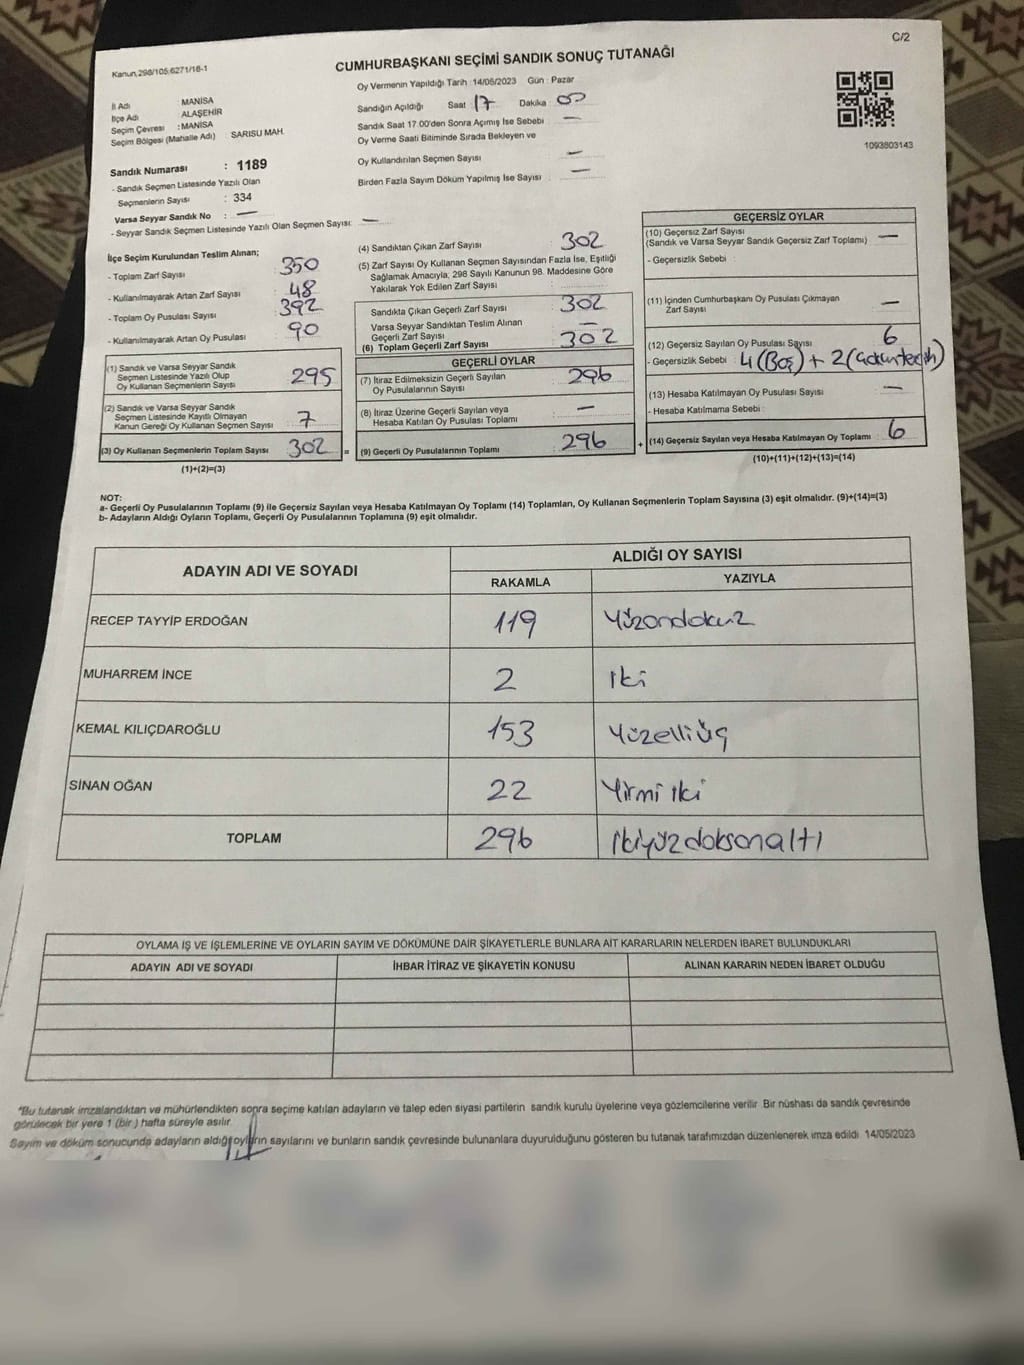 C/2
Kanun,298/105;6271/18-1
CUMHURBAŞKANI SEÇİMİ SANDIK SONUÇ TUTANAĞI
Oy Vermenin Yapıldığı Tarih : 14/05/2023 Gün : Pazar
İl Adı MANİSA
İlçe Adı ALAŞEHİR
Seçim Çevresi : MANİSA
Seçim Bölgesi (Mahalle Adı) : SARISU MAH.
Sandığın Açıldığı Saat 17 Dakika 00
Sandık Saat 17.00'den Sonra Açımış İse Sebebi : —
Oy Verme Saati Bitiminde Sırada Bekleyen ve
Oy Kullandırılan Seçmen Sayısı : —
Birden Fazla Sayım Döküm Yapılmış İse Sayısı : —
1093803143
Sandık Numarası : 1189
- Sandık Seçmen Listesinde Yazılı Olan
Seçmenlerin Sayısı : 334
Varsa Seyyar Sandık No : —
- Seyyar Sandık Seçmen Listesinde Yazılı Olan Seçmen Sayısı: —
İlçe Seçim Kurulundan Teslim Alınan;
- Toplam Zarf Sayısı : 350
- Kullanılmayarak Artan Zarf Sayısı : 48
- Toplam Oy Pusulası Sayısı : 392
- Kullanılmayarak Artan Oy Pusulası : 90
(1) Sandık ve Varsa Seyyar Sandık
Seçmen Listesinde Yazılı Olup
Oy Kullanan Seçmenlerin Sayısı : 295
(2) Sandık ve Varsa Seyyar Sandık
Seçmen Listesinde Kayıtlı Olmayan
Kanun Gereği Oy Kullanan Seçmen Sayısı : 7
(3) Oy Kullanan Seçmenlerin Toplam Sayısı 302 =
(1)+(2)=(3)
(4) Sandıktan Çıkan Zarf Sayısı : 302
(5) Zarf Sayısı Oy Kullanan Seçmen Sayısından Fazla İse, Eşitliği
Sağlamak Amacıyla, 298 Sayılı Kanunun 98. Maddesine Göre
Yakılarak Yok Edilen Zarf Sayısı :
Sandıkta Çıkan Geçerli Zarf Sayısı : 302
Varsa Seyyar Sandıktan Teslim Alınan
Geçerli Zarf Sayısı : —
(6) Toplam Geçerli Zarf Sayısı : 302
GEÇERLİ OYLAR
(7) İtiraz Edilmeksizin Geçerli Sayılan
Oy Pusulalarının Sayısı : 296
(8) İtiraz Üzerine Geçerli Sayılan veya
Hesaba Katılan Oy Pusulası Toplamı : —
(9) Geçerli Oy Pusulalarının Toplamı : 296 +
GEÇERSİZ OYLAR
(10) Geçersiz Zarf Sayısı
(Sandık ve Varsa Seyyar Sandık Geçersiz Zarf Toplamı) : —
- Geçersizlik Sebebi :
(11) İçinden Cumhurbaşkanı Oy Pusulası Çıkmayan
Zarf Sayısı : —
(12) Geçersiz Sayılan Oy Pusulası Sayısı : 6
- Geçersizlik Sebebi : 4 (Boş) + 2
(13) Hesaba Katılmayan Oy Pusulası Sayısı : —
- Hesaba Katılmama Sebebi :
(14) Geçersiz Sayılan veya Hesaba Katılmayan Oy Toplamı : 6
(10)+(11)+(12)+(13)=(14)
NOT:
a- Geçerli Oy Pusulalarının Toplamı (9) ile Geçersiz Sayılan veya Hesaba Katılmayan Oy Toplamı (14) Toplamları, Oy Kullanan Seçmenlerin Toplam Sayısına (3) eşit olmalıdır. (9)+(14)=(3)
b- Adayların Aldığı Oyların Toplamı, Geçerli Oy Pusulalarının Toplamına (9) eşit olmalıdır.
ADAYIN ADI VE SOYADI
ALDIĞI OY SAYISI
RAKAMLA YAZIYLA
RECEP TAYYİP ERDOĞAN 119 Yüzondokuz
MUHARREM İNCE 2 iki
KEMAL KILIÇDAROĞLU 153 Yüzelliüç
SİNAN OĞAN 22 Yirmi iki
TOPLAM 296 ikiyüzdoksanaltı
OYLAMA İŞ VE İŞLEMLERİNE VE OYLARIN SAYIM VE DÖKÜMÜNE DAİR ŞİKAYETLERLE BUNLARA AİT KARARLARIN NELERDEN İBARET BULUNDUKLARI
ADAYIN ADI VE SOYADI İHBAR İTİRAZ VE ŞİKAYETİN KONUSU ALINAN KARARIN NEDEN İBARET OLDUĞU
*Bu tutanak imzalandıktan ve mühürlendikten sonra seçime katılan adayların ve talep eden siyasi partilerin sandık kurulu üyelerine veya gözlemcilerine verilir. Bir nüshası da sandık çevresinde
görülecek bir yere 1 (bir ) hafta süreyle asılır.
Sayım ve döküm sonucunda adayların aldığı oyların sayılarını ve bunların sandık çevresinde bulunanlara duyurulduğunu gösteren bu tutanak tarafımızdan düzenlenerek imza edildi. 14/05/2023